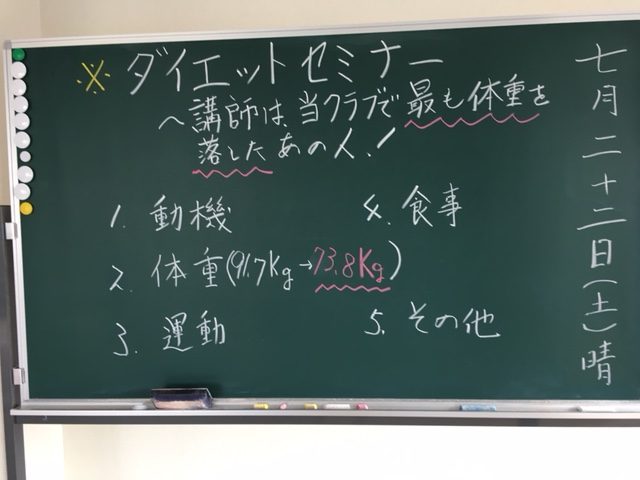 ※ ダイエットセミナー
〜講師は、当クラブで最も体重を
落したあの人!
1. 動機
2. 体重(91.7Kg→73.8Kg)
3. 運動
4. 食事
5. その他
七月二十二日(土)晴